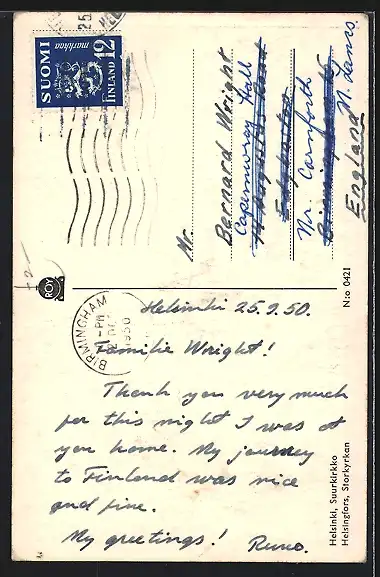 SUOMI
markkaa
12
FINLAND
BIRMINGHAM
PM
1950
Mr.
Bernard Wright
Capernwray Hall
Edgbaston
Nr Carnforth
Birmingham
N. Lancs.
England
ROY
N:o 0421
Helsinki 25.9.50.
Familie Wright!
Thank you very much
for this night I was at
you home. My journey
to Finland was nice
and fine.
My greetings! Runo.
Helsinki, Suurkirkko
Helsingfors, Storkyrkan